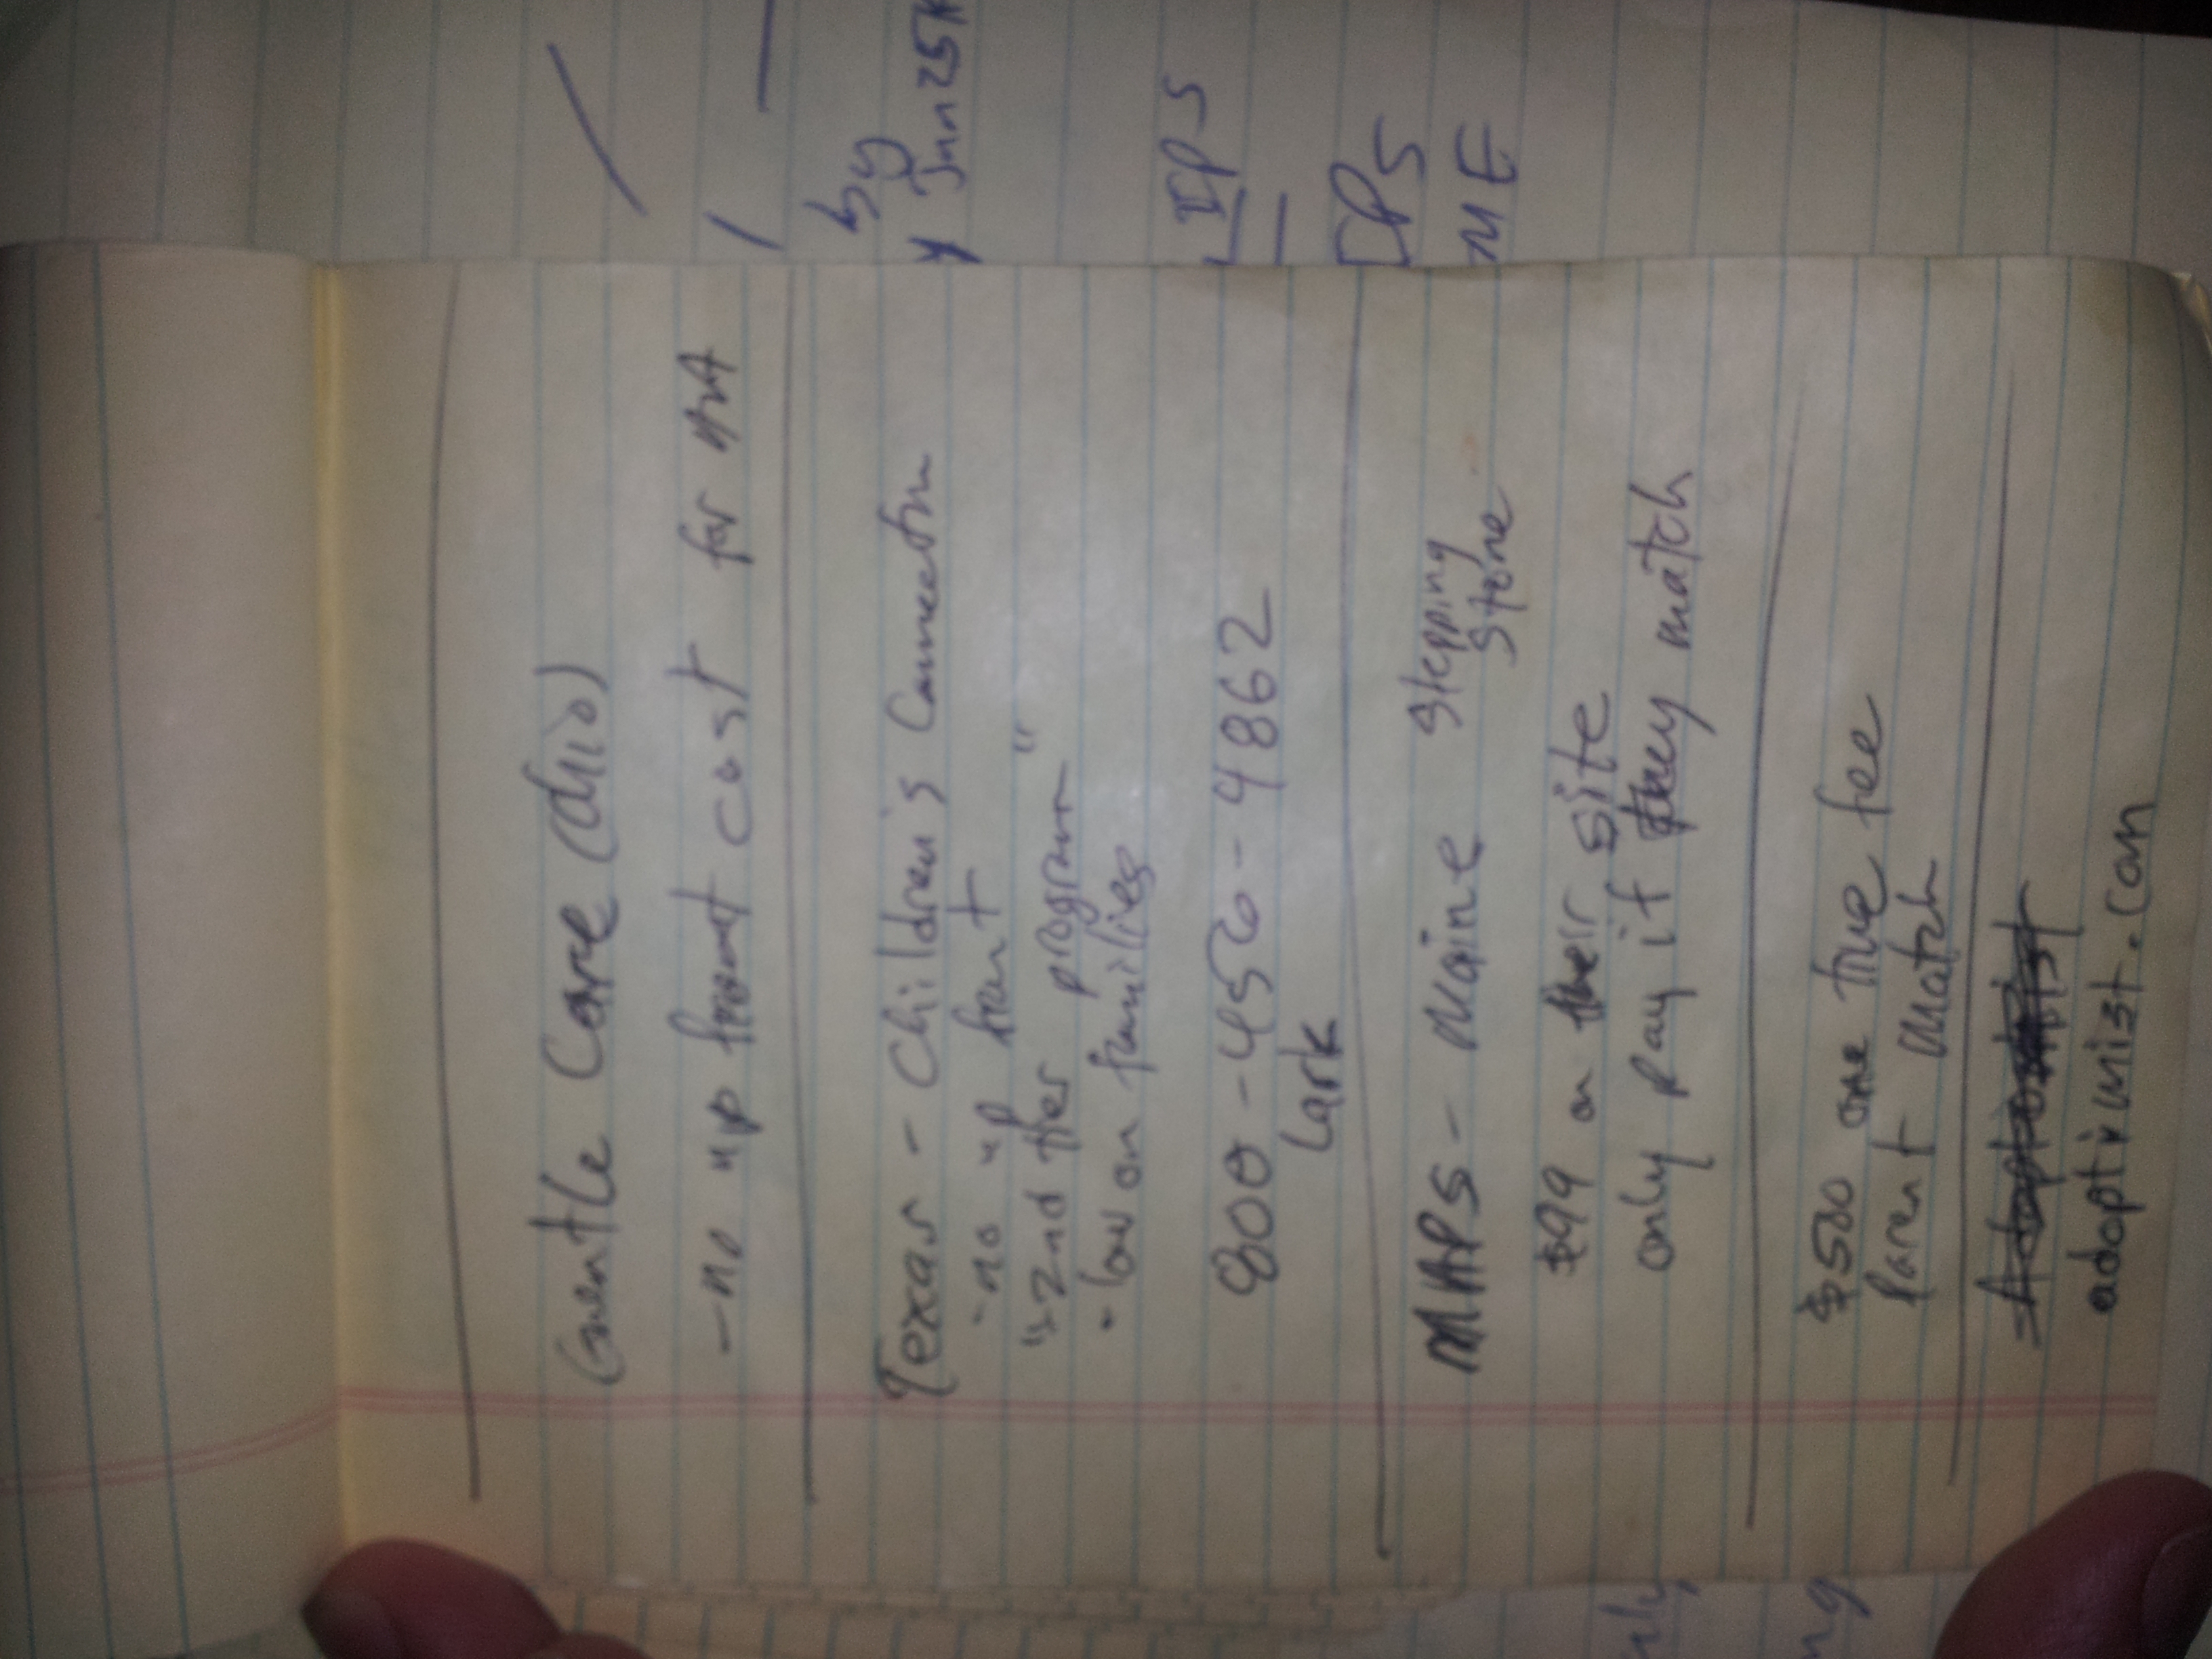 Gentle Care (Ohio)
- no up front cost for
Texas - Children's Connection
- no up front
"2nd tier program"
- low on families
800-456-4862
Lark
MAPS - Maine Stepping
Stone
$99 on their site
only pay if they match
$500 one time fee
Parent Match
adoptimist.com
by
y Jun 25th
IPS
IPS
ME